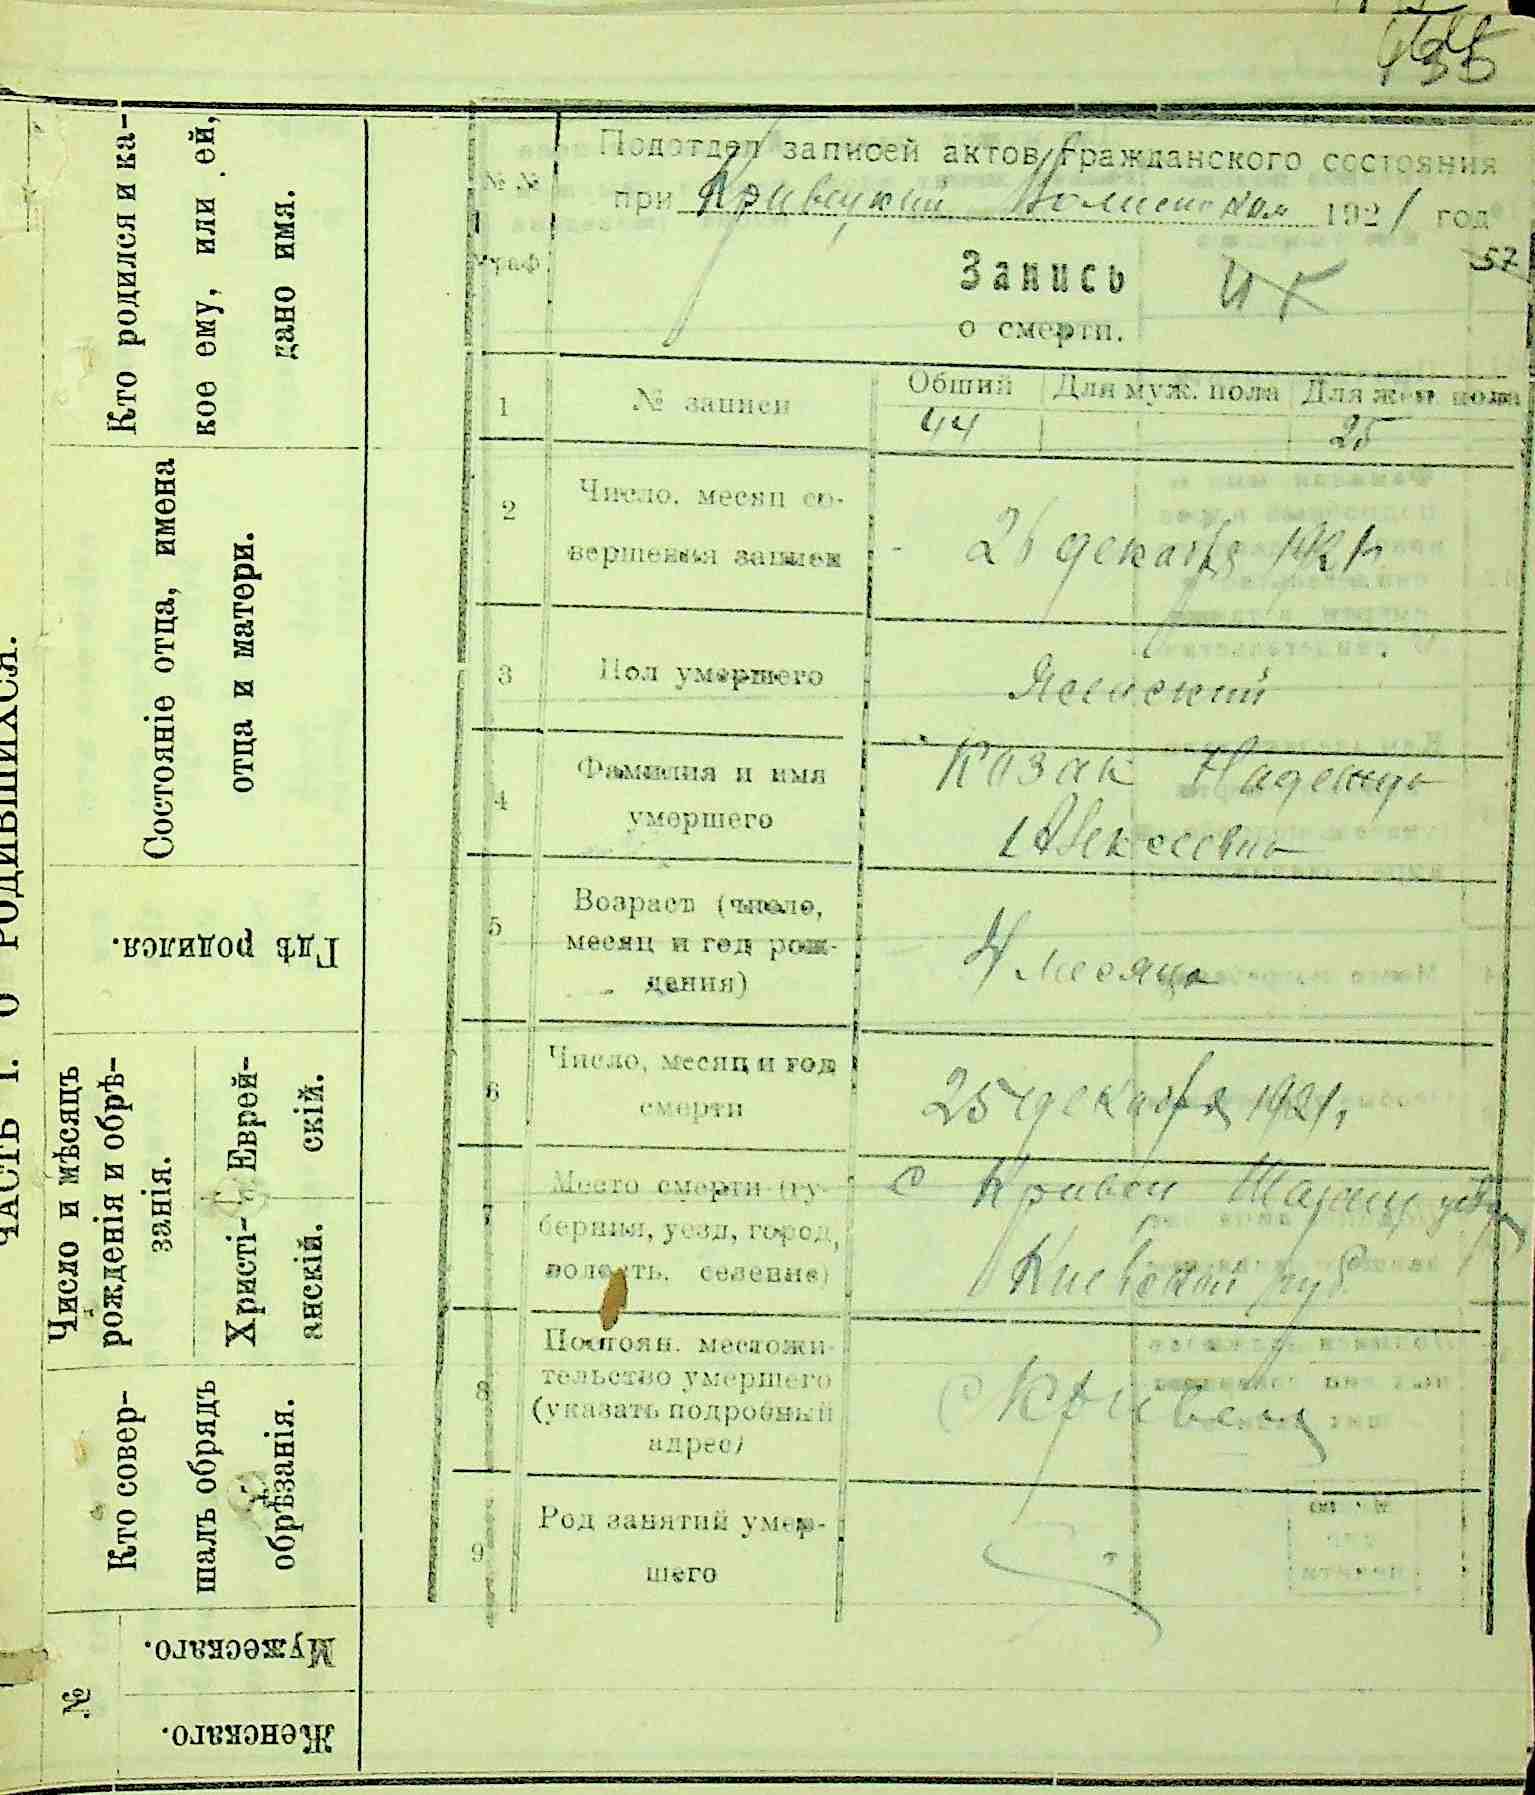 135
Подотдел записей актов гражданского состояния
при Кривецкий Волисполком 1921 год
57
№ №
граф
Запись
ИК
о смерти.
1
№ записи
Общий
Для муж. пола
Для жен пола
44
25
2
Число, месяц со-
вершения записи
26 декабря 1921 г.
3
Пол умершего
Женский
4
Фамилия и имя
умершего
Козак Надежда
Алексеевна
5
Возраст (число,
месяц и год рож-
дения)
4 месяца
6
Число, месяц и год
смерти
25 декабря 1921 г.
7
Место смерти (гу-
берния, уезд, город,
волость, селение)
с Кривец
Киевской губ
8
Постоян. местожи-
тельство умершего
(указать подробный
адрес)
с Кривец
9
Род занятий умер-
шего
ЧАСТЬ I. О РОДИВШИХСЯ.
Кто родился и ка-
кое ему, или ей,
дано имя.
Состояніе отца, имена
отца и матери.
Гдѣ родился.
Число и мѣсяцъ
рожденія и обрѣ-
занія.
Христі-
анскій.
Еврей-
скій.
Кто совер-
шалъ обрядъ
обрѣзанія.
№
Мужескаго.
Женскаго.